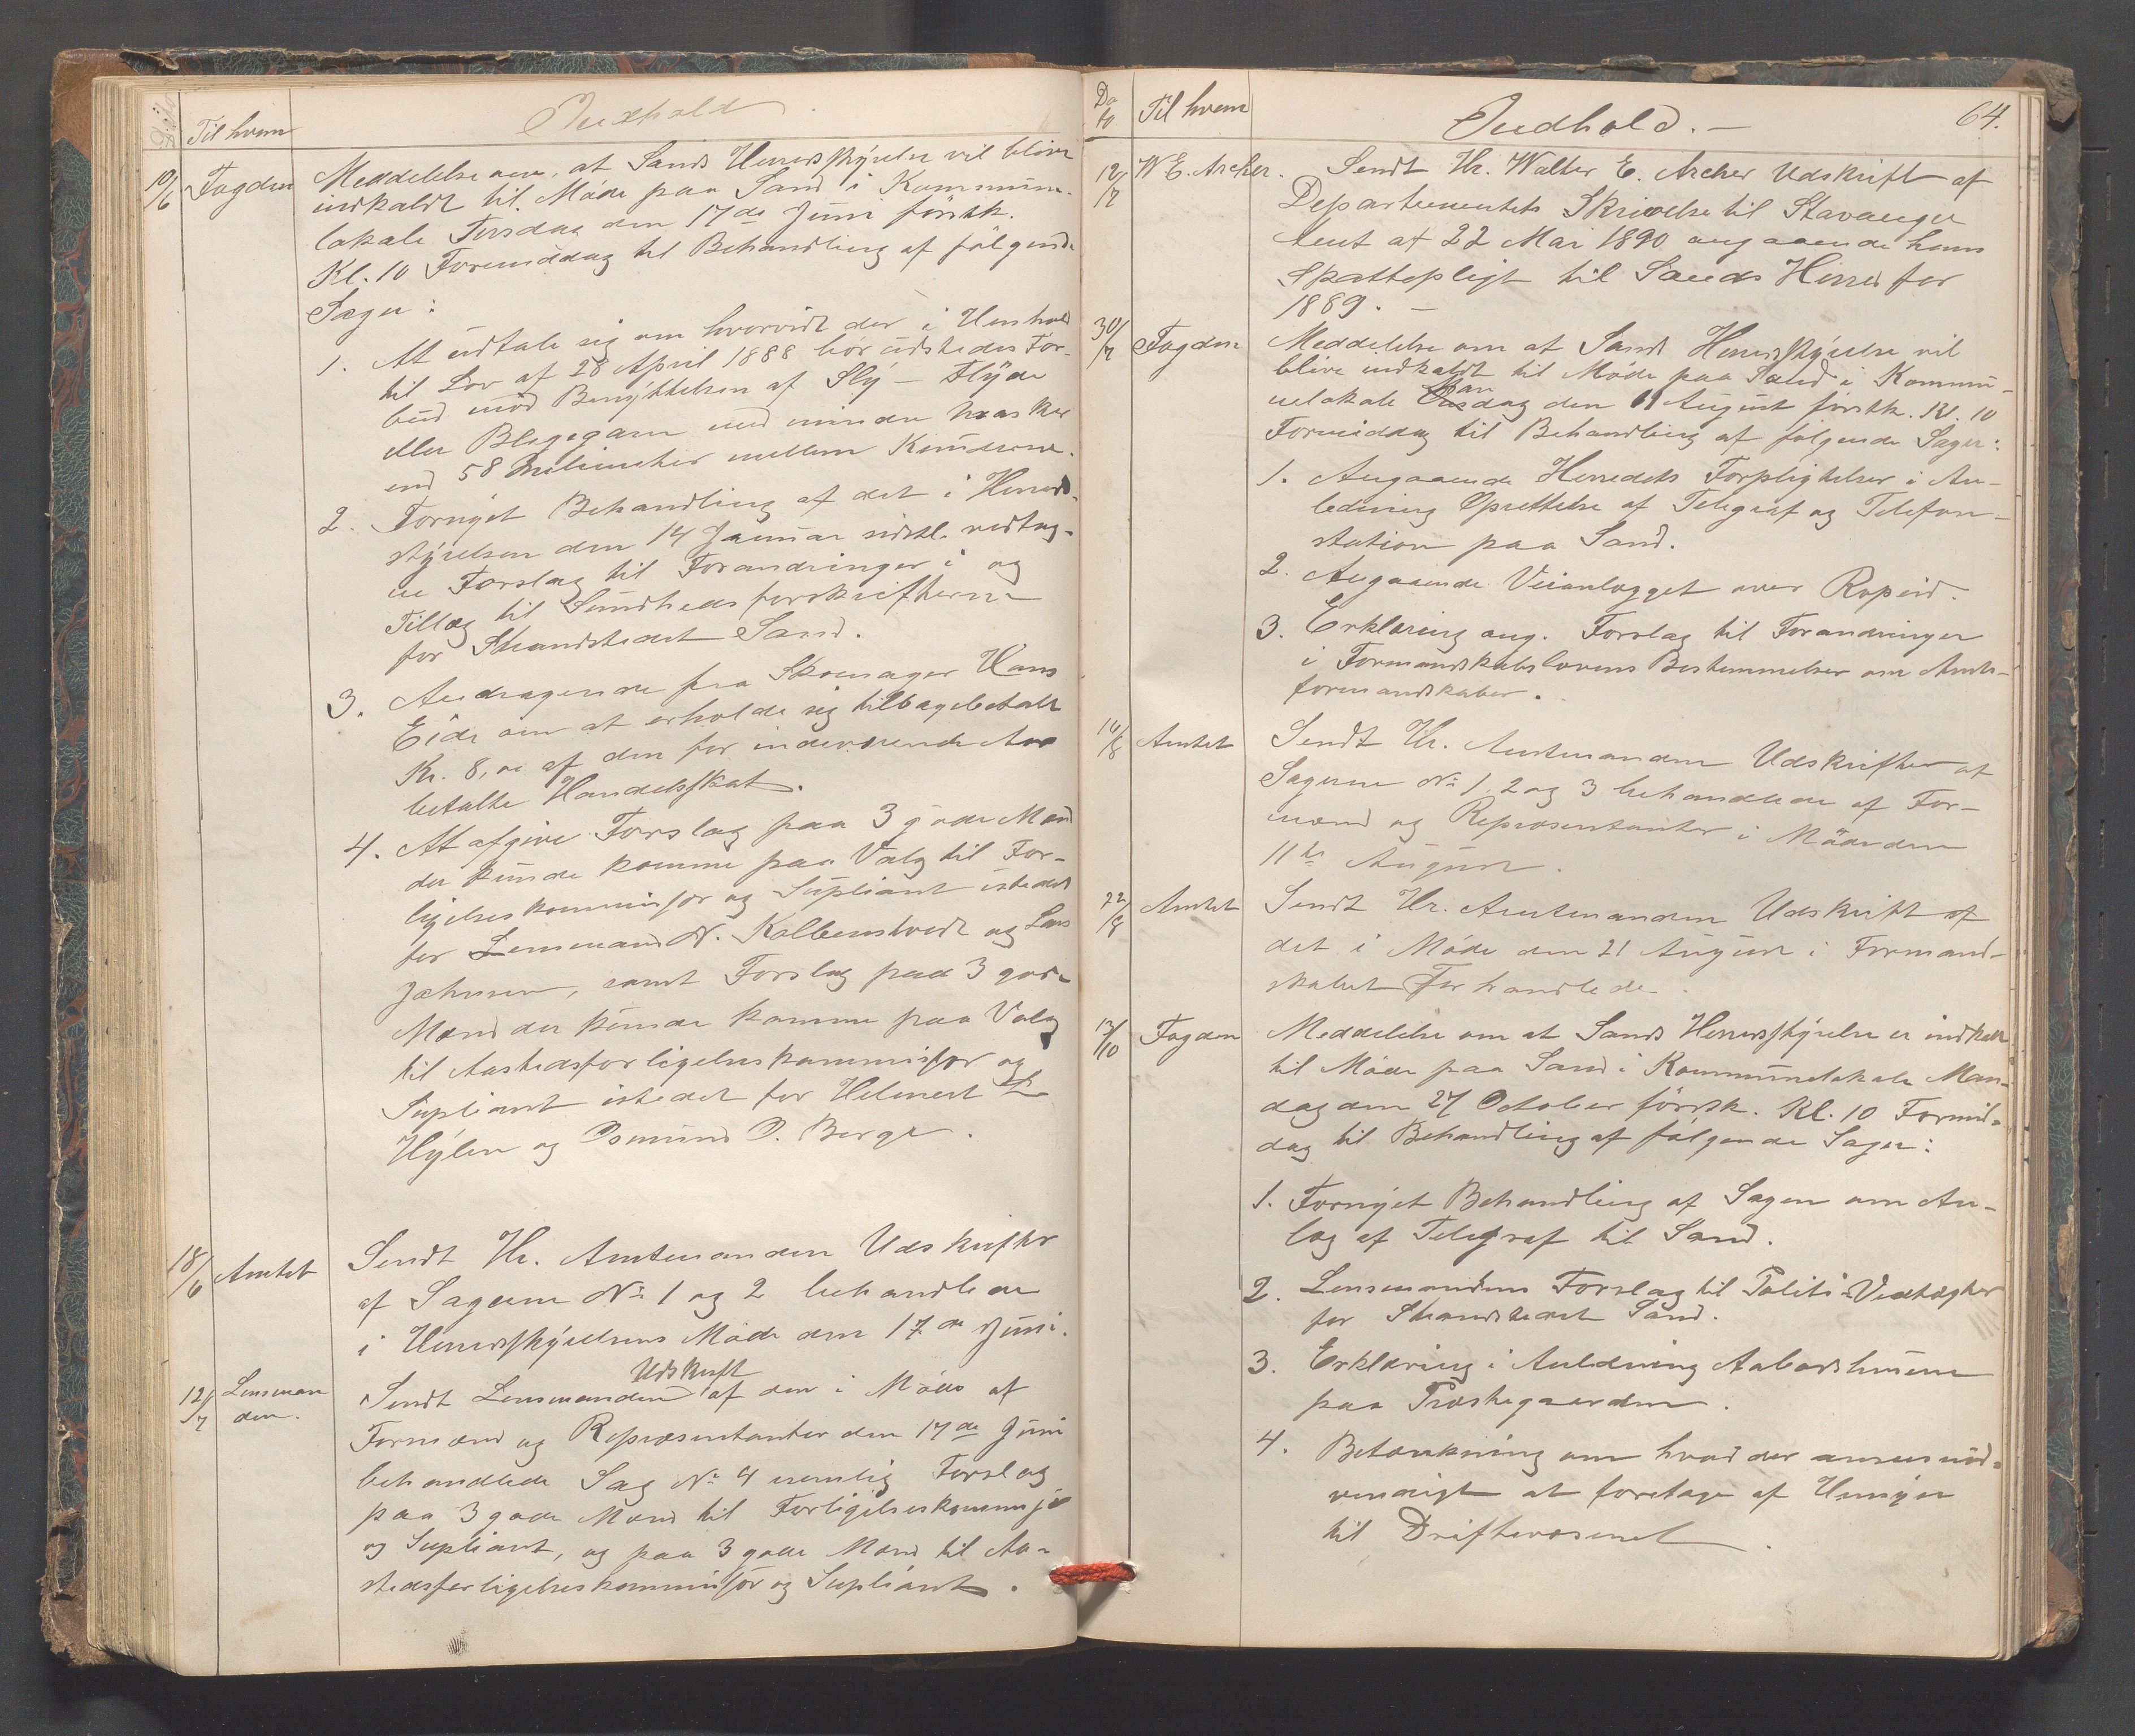 Dato
Til hvem
Indhold
10/6
Fogden
Meddelelse om, at Sands Herredsstyrelse vil blive
indkaldt til Møde paa Sand i Kommune-
lokale Tirsdag den 17de Juni førstk.
Kl. 10 Formiddag til Behandling af følgende
Sager:
1. At udtale sig om hvorvidt der i Henhold
til Lov af 28 April 1888 bør udstedes For-
bud mod Benyttelsen af Sly- Flyde
eller Blegegarn med mindre Masker
end 58 Milimeter mellem Knuderne.
2. Fornyet Behandling af det i Herreds-
styrelsen den 14 Januar sidstl. vedtag-
ne Forslag til Forandringer i og
Tillæg til Sundhedsforskrifterne
for Strandstedet Sand.
3. Andragende fra Skomager Hans
Eide om at erholde sig tilbagebetalt
Kr. 8,00 af den for indeværende Aar
betalte Handelsskat.
4. At afgive Forslag paa 3 gode Mænd
der kunde komme paa Valg til For-
ligelseskommissør og Supliant istedet
for Lensmand N. Kolbenstvedt og Lars
Johnsen, samt Forslag paa 3 gode
Mænd der kunde komme paa Valg
til Aastedsforligelseskommissør og
Supliant istedet for Helmert L.
Hylen og Osmund O. Berge.
18/6
Amtet
Sendt Hr. Amtmanden Udskrifter
af Sagerne No 1 og 2 behandlede
i Herredsstyrelsens Møde den 17de Juni.
12/7
Lensman
den.
Udskrift
Sendt Lensmanden af den i Møde af
Formænd og Repræsentanter den 17de Juni
behandlede Sag No 4 nemlig Forslag
paa 3 gode Mænd til Forligelseskommissør
og Supliant, og paa 3 gode Mænd til Aa-
stedsforligelseskommissør og Supliant.
Da
to
Til hvem
Indhold.-
64.
12/7
W E. Archer.
Sendt Hr. Walter E. Archer Udskrift af
Departementets Skrivelse til Stavanger
Amt af 22 Mai 1890 angaaende hans
Skattepligt til Sands Herred for
1889.-
30/7
Fogden
Meddelelse om at Sands Herredsstyrelse vil
blive indkaldt til Møde paa Sand i Kommu-
Man
nelokale Onsdag den 11 August førstk. Kl. 10
Formiddag til Behandling af følgende Sager:
1. Angaaende Herredets Forpligtelser i An-
ledning Oprettelse af Telegraf og Telefon-
station paa Sand.
2. Angaaende Veianlægget over Ropeid.
3. Erklæring ang. Forslag til Forandringer
i Formandskabslovens Bestemmelser om Amts-
formandskaber.
14/8
Amtet
Sendt Hr. Amtmanden Udskrifter af
Sagerne No 1, 2 og 3 behandlede af For-
mænd og Repræsentanter i Møde den
11te August.
22/8
Amtet
Sendt Hr. Amtmanden Udskrift af
det i Møde den 21 August i Formand-
skabet Forhandlede.
13/10
Fogden
Meddelelse om at Sands Herredsstyrelse er indkaldt
til Møde paa Sand i Kommunelokale Man-
dag den 27 October førstk. Kl. 10 Formid-
dag til Behandling af følgende Sager:
1. Fornyet Behandling af Sagen om An-
læg af Telegraf til Sand.
2. Lensmandens Forslag til Politi-Vedtægter
for Strandstedet Sand.
3. Erklæring i Anledning Aabodshusene
paa Præstegaarden.
4. Betænkning om hvad der ansees nød-
vendigt at foretage af Hensyn
til Driftevæsenet.